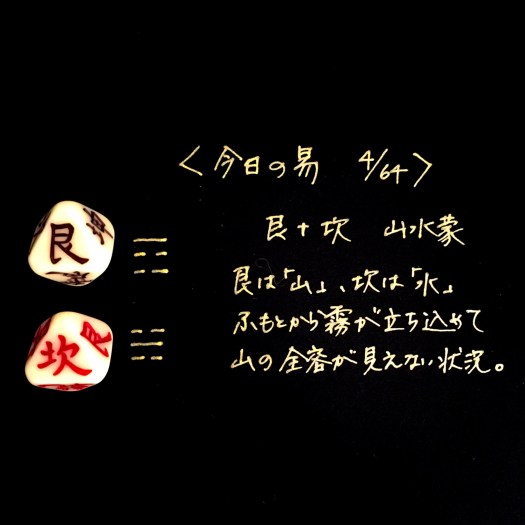 〈今日の易 4/64〉
艮+坎 山水蒙
艮は「山」、坎は「水」
ふもとから霧が立ち込めて
山の全容が見えない状況。
艮
坎
艮